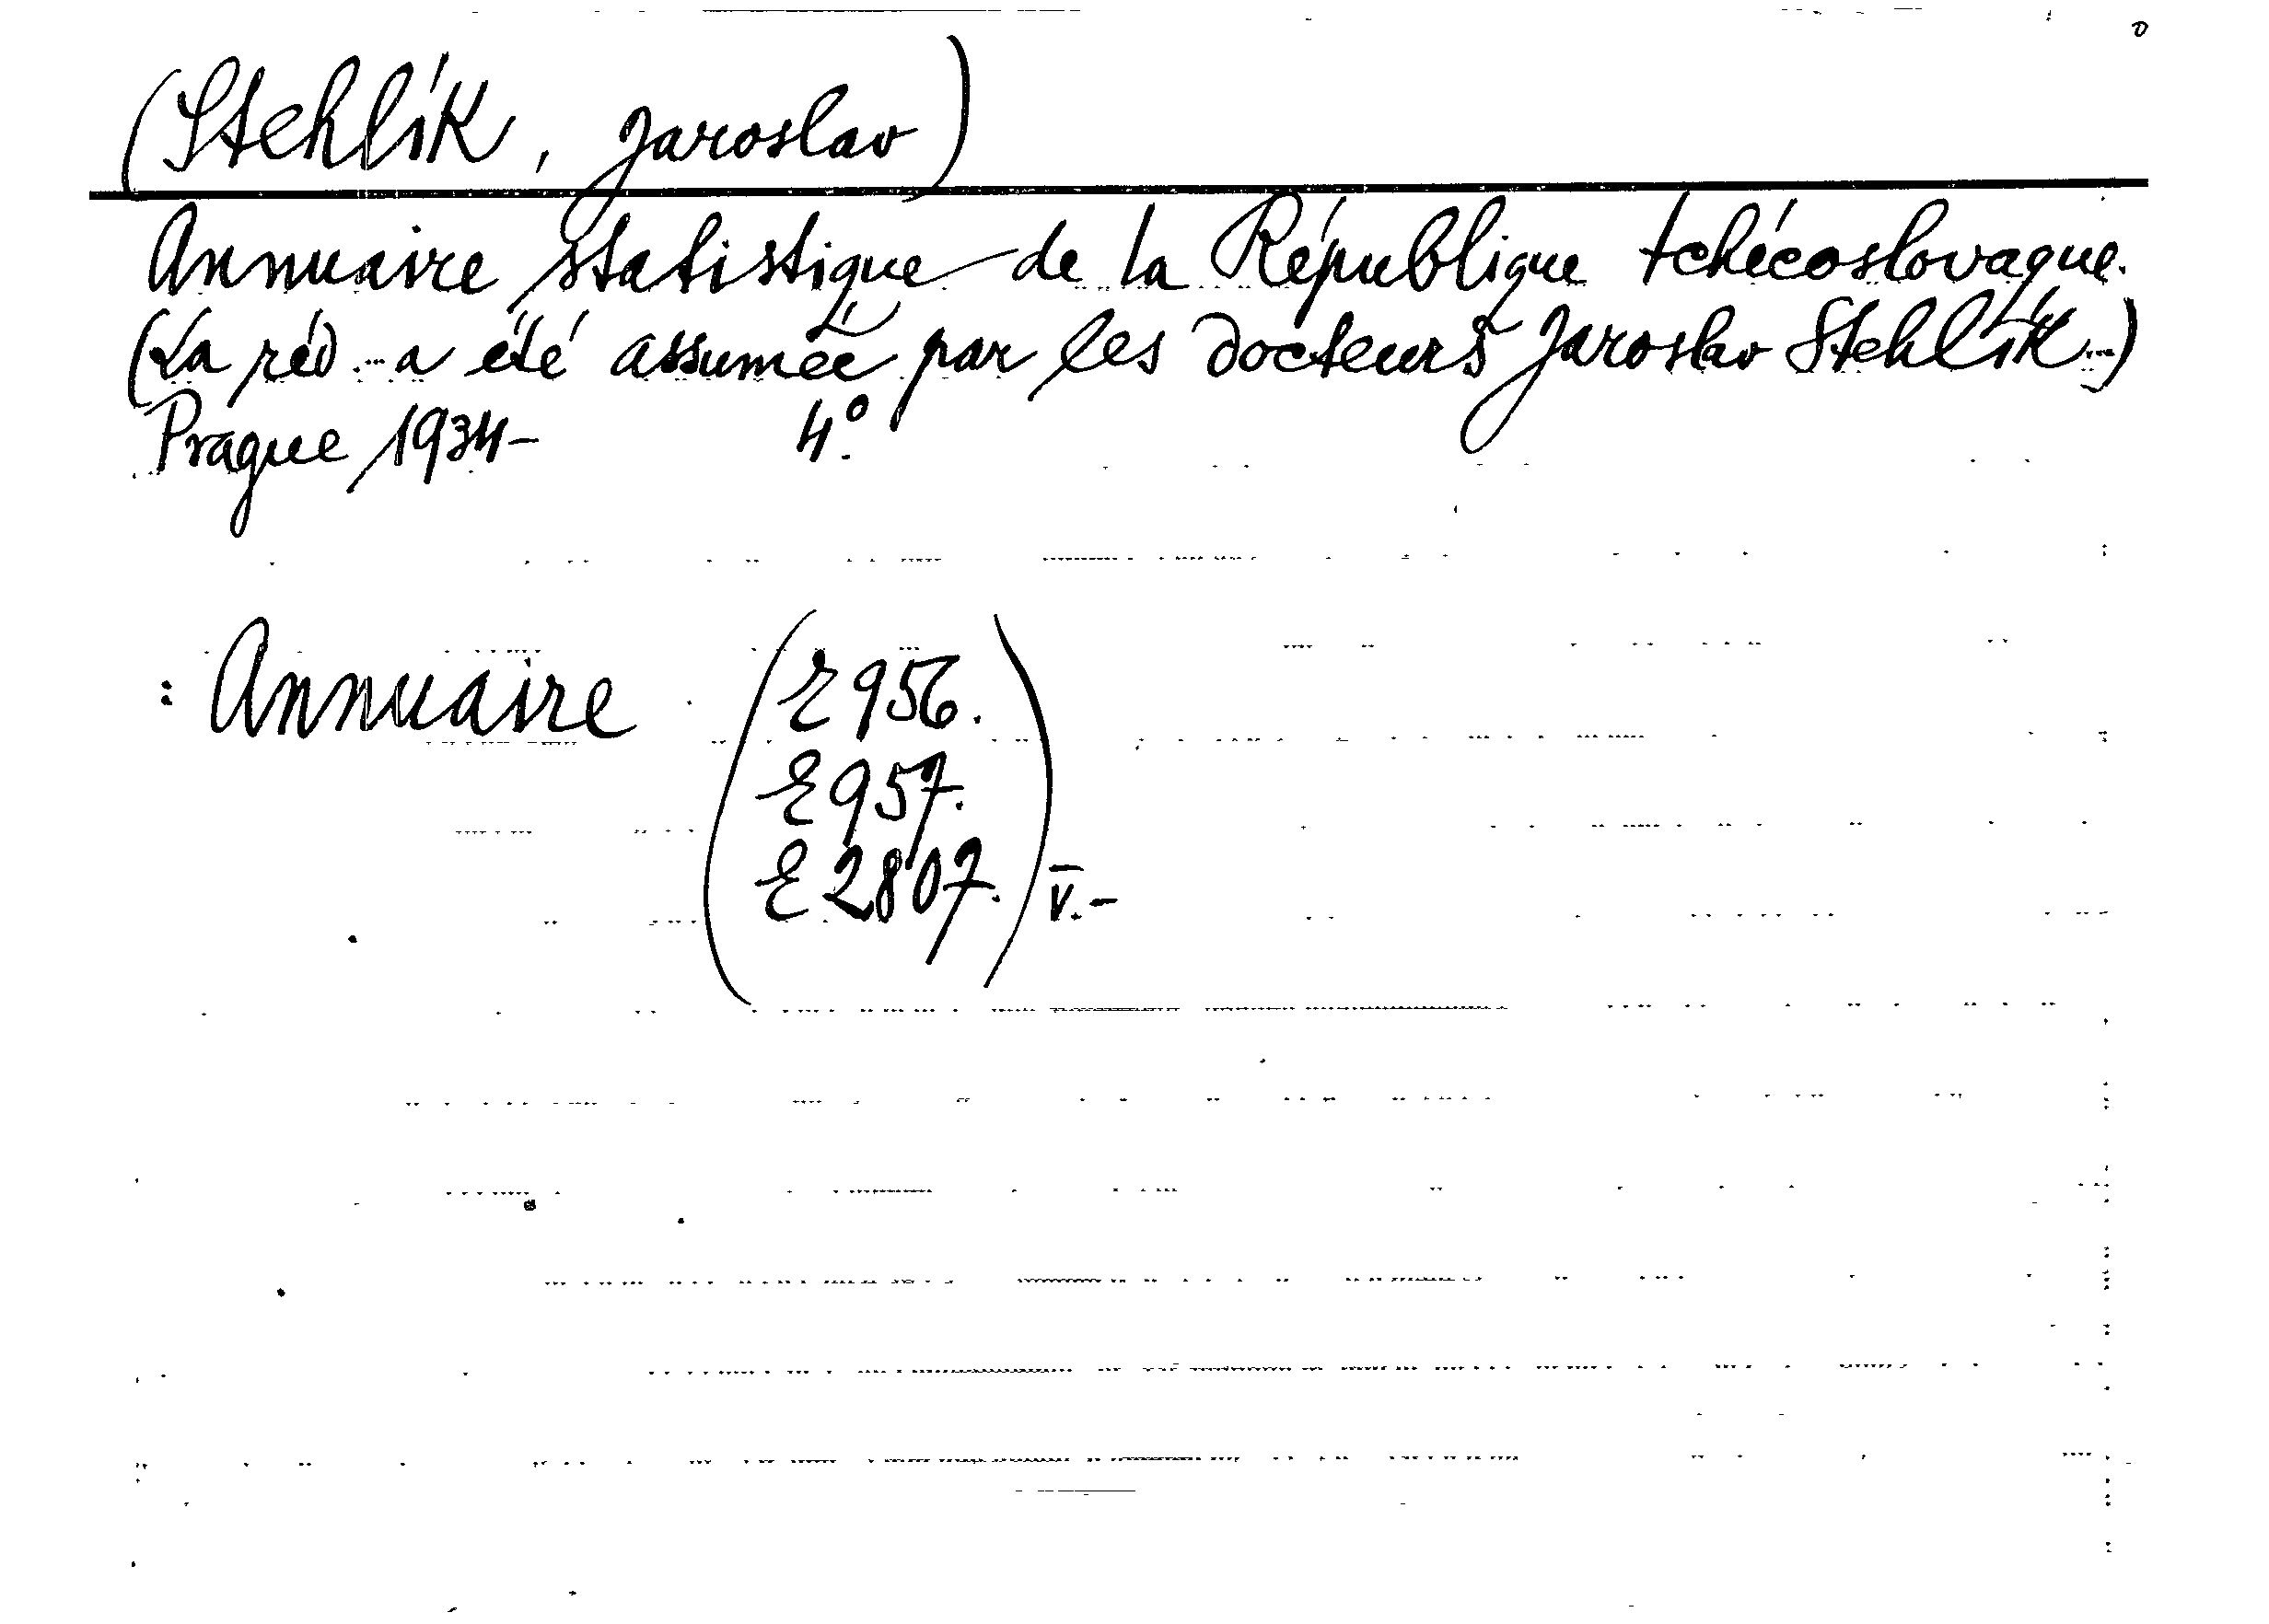 (Stehlík, Jaroslav)
Annuaire statistique de la République tchécoslovaque.
(La réd ... a été assumée par les docteurs Jaroslav Stehlík...)
Prague 1934- 4°.
: Annuaire (E 956.
E 957.
E 2807.) V.-